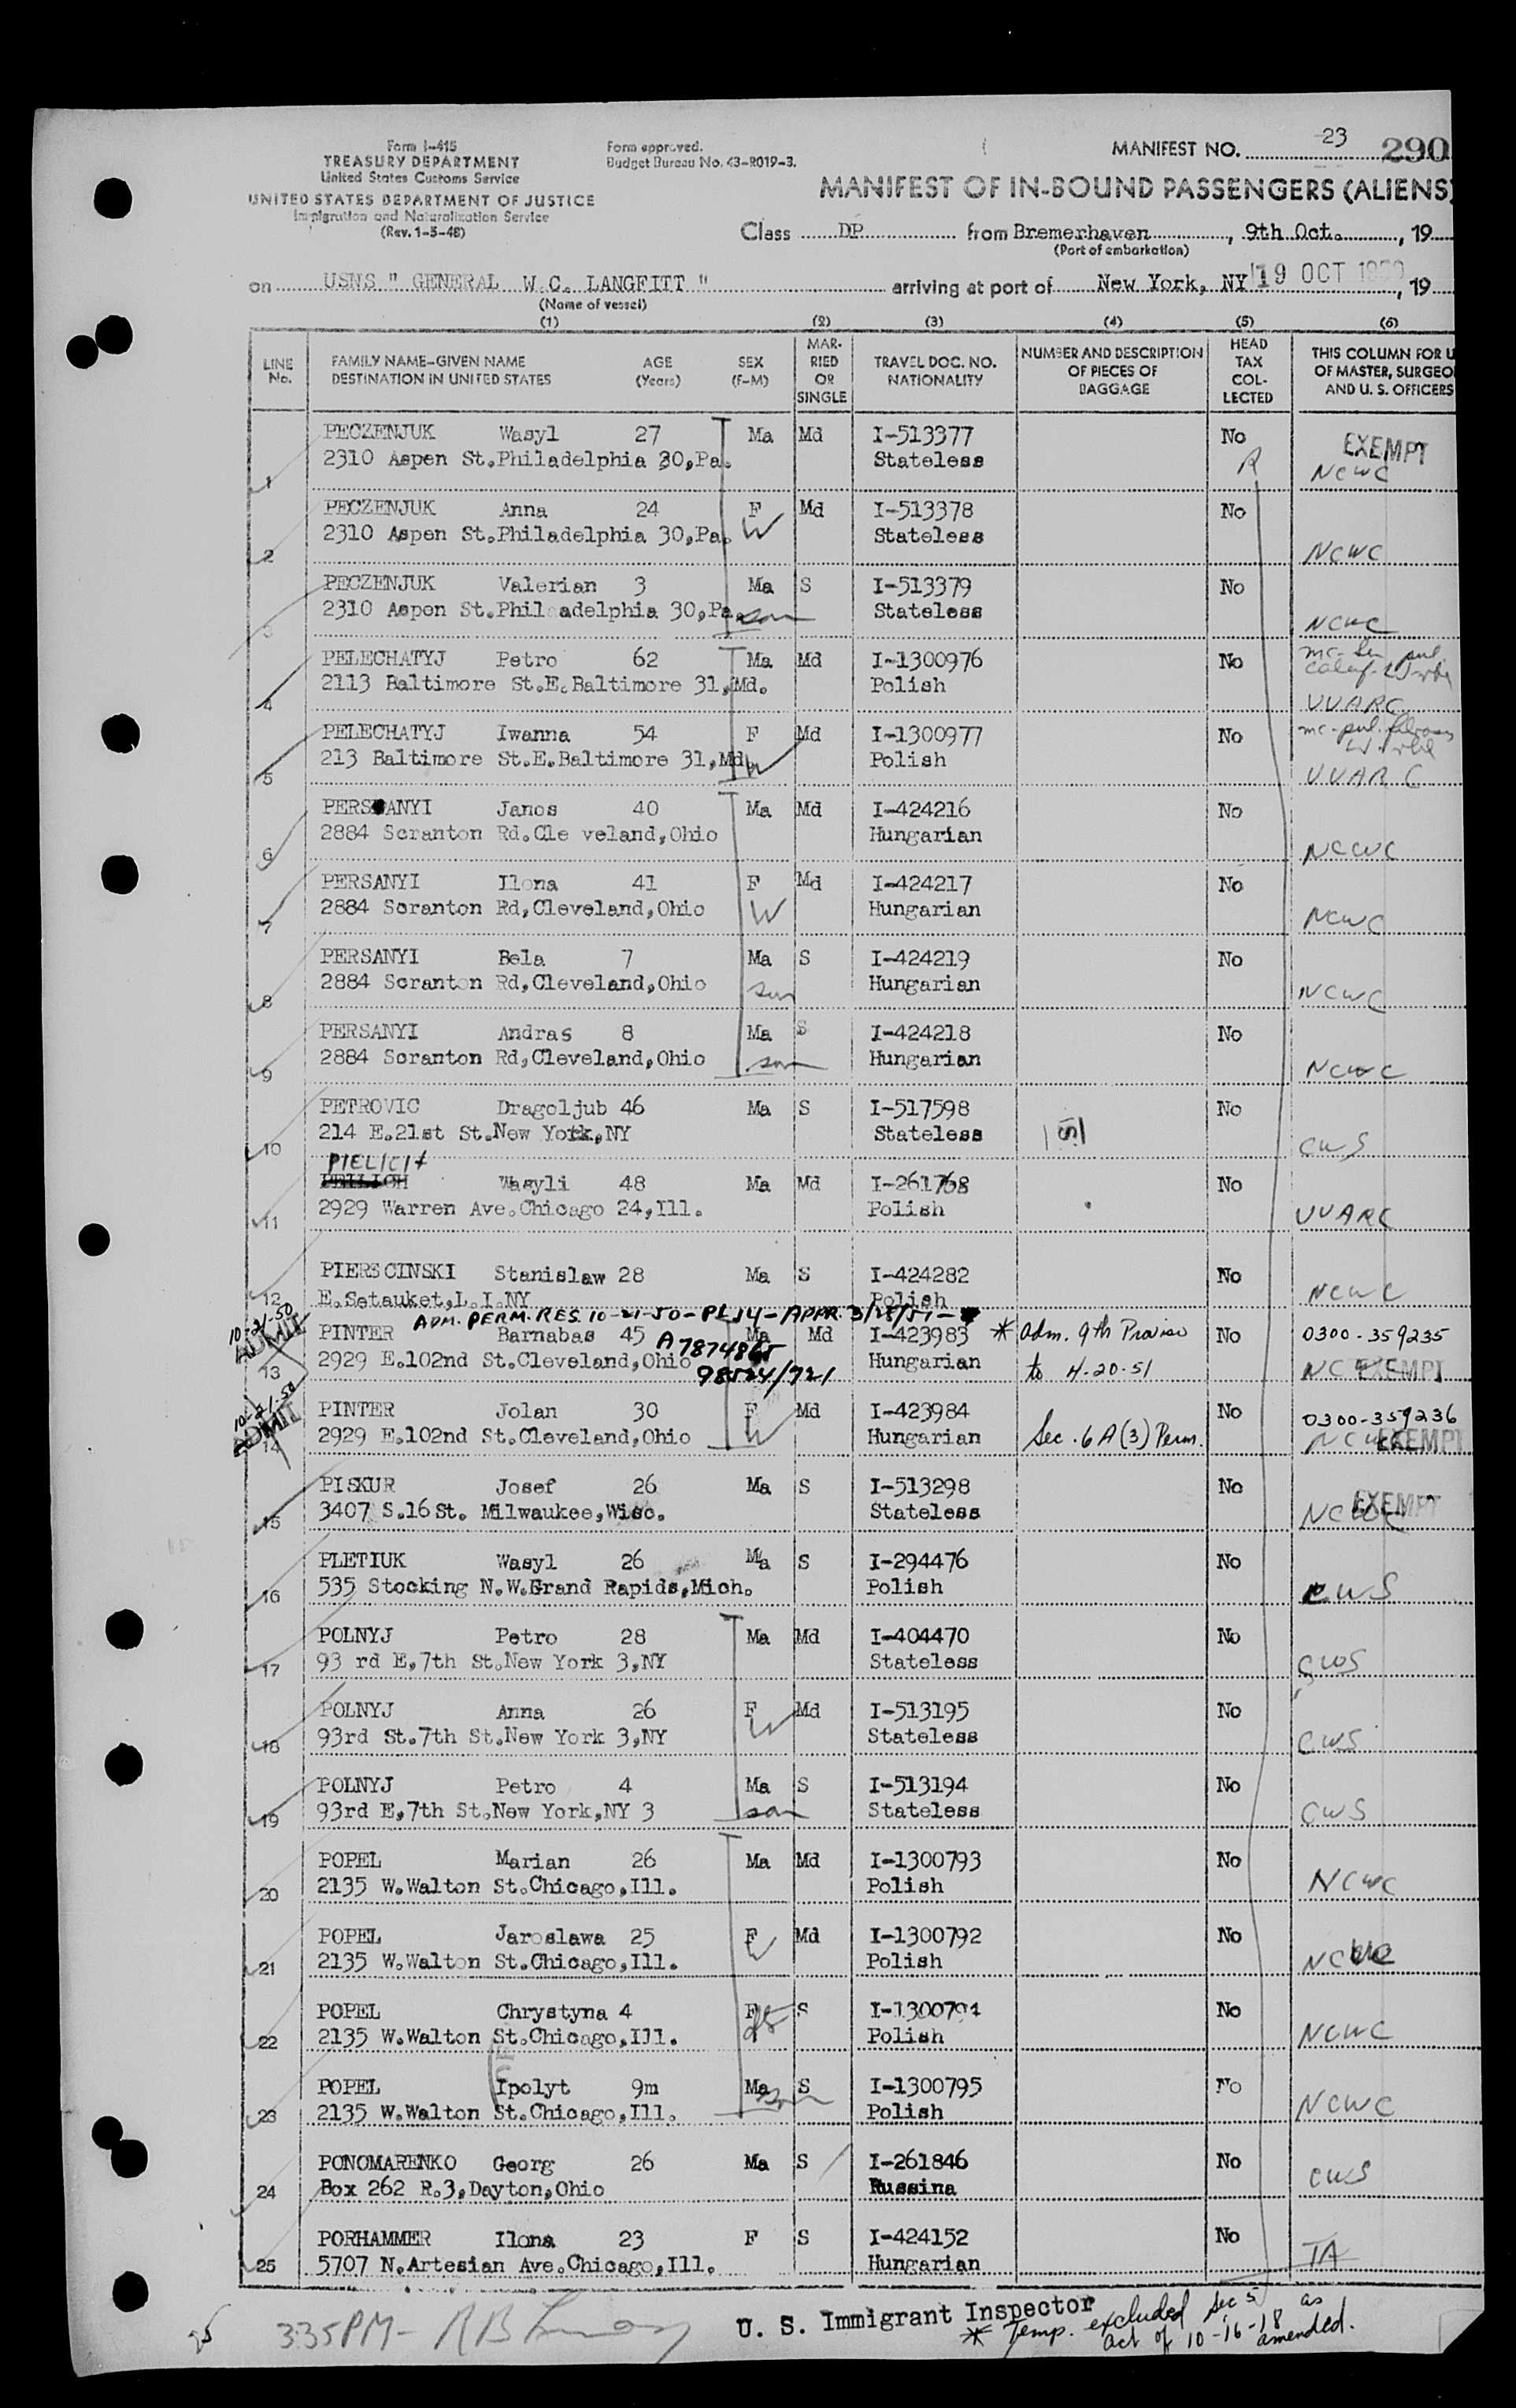 Form I-415
TREASURY DEPARTMENT
United States Customs Service
UNITED STATES DEPARTMENT OF JUSTICE
Immigration and Naturalization Service
(Rev. 1-5-48)
Form approved.
Budget Bureau No. 43-R019-3.
MANIFEST NO. 23 290
MANIFEST OF IN-BOUND PASSENGERS (ALIENS)
Class DP from Bremerhaven, 9th Oct., 19
(Port of embarkation)
on USNS " GENERAL W.C. LANGFITT " arriving at port of New York, NY 19 OCT 1950, 19
(Name of vessel)
(1) (2) (3) (4) (5) (6)
LINE No. FAMILY NAME-GIVEN NAME DESTINATION IN UNITED STATES AGE (Years) SEX (F-M) MARRIED OR SINGLE TRAVEL DOC. NO. NATIONALITY NUMBER AND DESCRIPTION OF PIECES OF BAGGAGE HEAD TAX COLLECTED THIS COLUMN FOR U OF MASTER, SURGEO AND U. S. OFFICERS
PECZENJUK Wasyl 27 Ma Md I-513377 No EXEMPT
1 2310 Aspen St.Philadelphia 30,Pa. Stateless R NCWC
PECZENJUK Anna 24 F Md I-513378 No
2 2310 Aspen St.Philadelphia 30,Pa. W Stateless NCWC
PECZENJUK Valerian 3 Ma S I-513379 No
3 2310 Aspen St.Phil adelphia 30,Pa. son Stateless NCWC
PELECHATYJ Petro 62 Ma Md I-1300976 No
4 2113 Baltimore St.E.Baltimore 31,Md. Polish UUARC
PELECHATYJ Iwanna 54 F Md I-1300977 No
5 213 Baltimore St.E.Baltimore 31,Md. W Polish UUARC
PERSANYI Janos 40 Ma Md I-424216 No
6 2884 Scranton Rd.Cle veland,Ohio Hungarian NCWC
PERSANYI Ilona 41 F Md I-424217 No
7 2884 Scranton Rd,Cleveland,Ohio W Hungarian NCWC
PERSANYI Bela 7 Ma S I-424219 No
8 2884 Scranton Rd,Cleveland,Ohio son Hungarian NCWC
PERSANYI Andras 8 Ma S I-424218 No
9 2884 Scranton Rd,Cleveland,Ohio son Hungarian NCWC
PETROVIC Dragoljub 46 Ma S I-517598 No
10 214 E.21st St.New York,NY Stateless CWS
PIELICH
Wasyli 48 Ma Md I-261768 No
11 2929 Warren Ave.Chicago 24,Ill. Polish UUARC
PIERSCINSKI Stanislaw 28 Ma S I-424282 No
12 E.Setauket,L.I.NY Polish NCWC
10-21-50 ADMIT ADM. PERM. RES. 10-21-50-PL 14-APPR. 3/28/51-
PINTER Barnabas 45 A7874865 Ma Md I-423983 * Adm. 9th Proviso No 0300-359235
13 2929 E.102nd St.Cleveland,Ohio 98524/721 Hungarian to 4-20-51 NC EXEMPT
10-21-50 ADMIT
PINTER Jolan 30 F Md I-423984 No 0300-359236
14 2929 E.102nd St.Cleveland,Ohio W Hungarian Sec. 6A(3) Perm. NCWC EXEMPT
PISKUR Josef 26 Ma S I-513298 No EXEMPT
15 3407 S.16 St. Milwaukee,Wisc. Stateless NCWC
PLETIUK Wasyl 26 Ma S I-294476 No
16 535 Stocking N.W.Grand Rapids,Mich. Polish CWS
POLNYJ Petro 28 Ma Md I-404470 No
17 93 rd E,7th St.New York 3,NY Stateless CWS
POLNYJ Anna 26 F Md I-513195 No
18 93rd St.7th St.New York 3,NY W Stateless CWS
POLNYJ Petro 4 Ma S I-513194 No
19 93rd E,7th St.New York,NY 3 son Stateless CWS
POPEL Marian 26 Ma Md I-1300793 No
20 2135 W.Walton St.Chicago,Ill. Polish NCWC
POPEL Jaroslawa 25 F Md I-1300792 No
21 2135 W.Walton St.Chicago,Ill. W Polish NCWC
POPEL Chrystyna 4 F S I-1300794 No
22 2135 W.Walton St.Chicago,Ill. Polish NCWC
POPEL Ipolyt 9m Ma S I-1300795 No
23 2135 W.Walton St.Chicago,Ill. son Polish NCWC
PONOMARENKO Georg 26 Ma S I-261846 No
24 Box 262 R.3,Dayton,Ohio Russina CWS
PORHAMMER Ilona 23 F S I-424152 No
25 5707 N.Artesian Ave.Chicago,Ill. Hungarian TA
25 3:35PM-
U. S. Immigrant Inspector
* Temp. excluded Sec 5 as
Act of 10-16-18 amended.